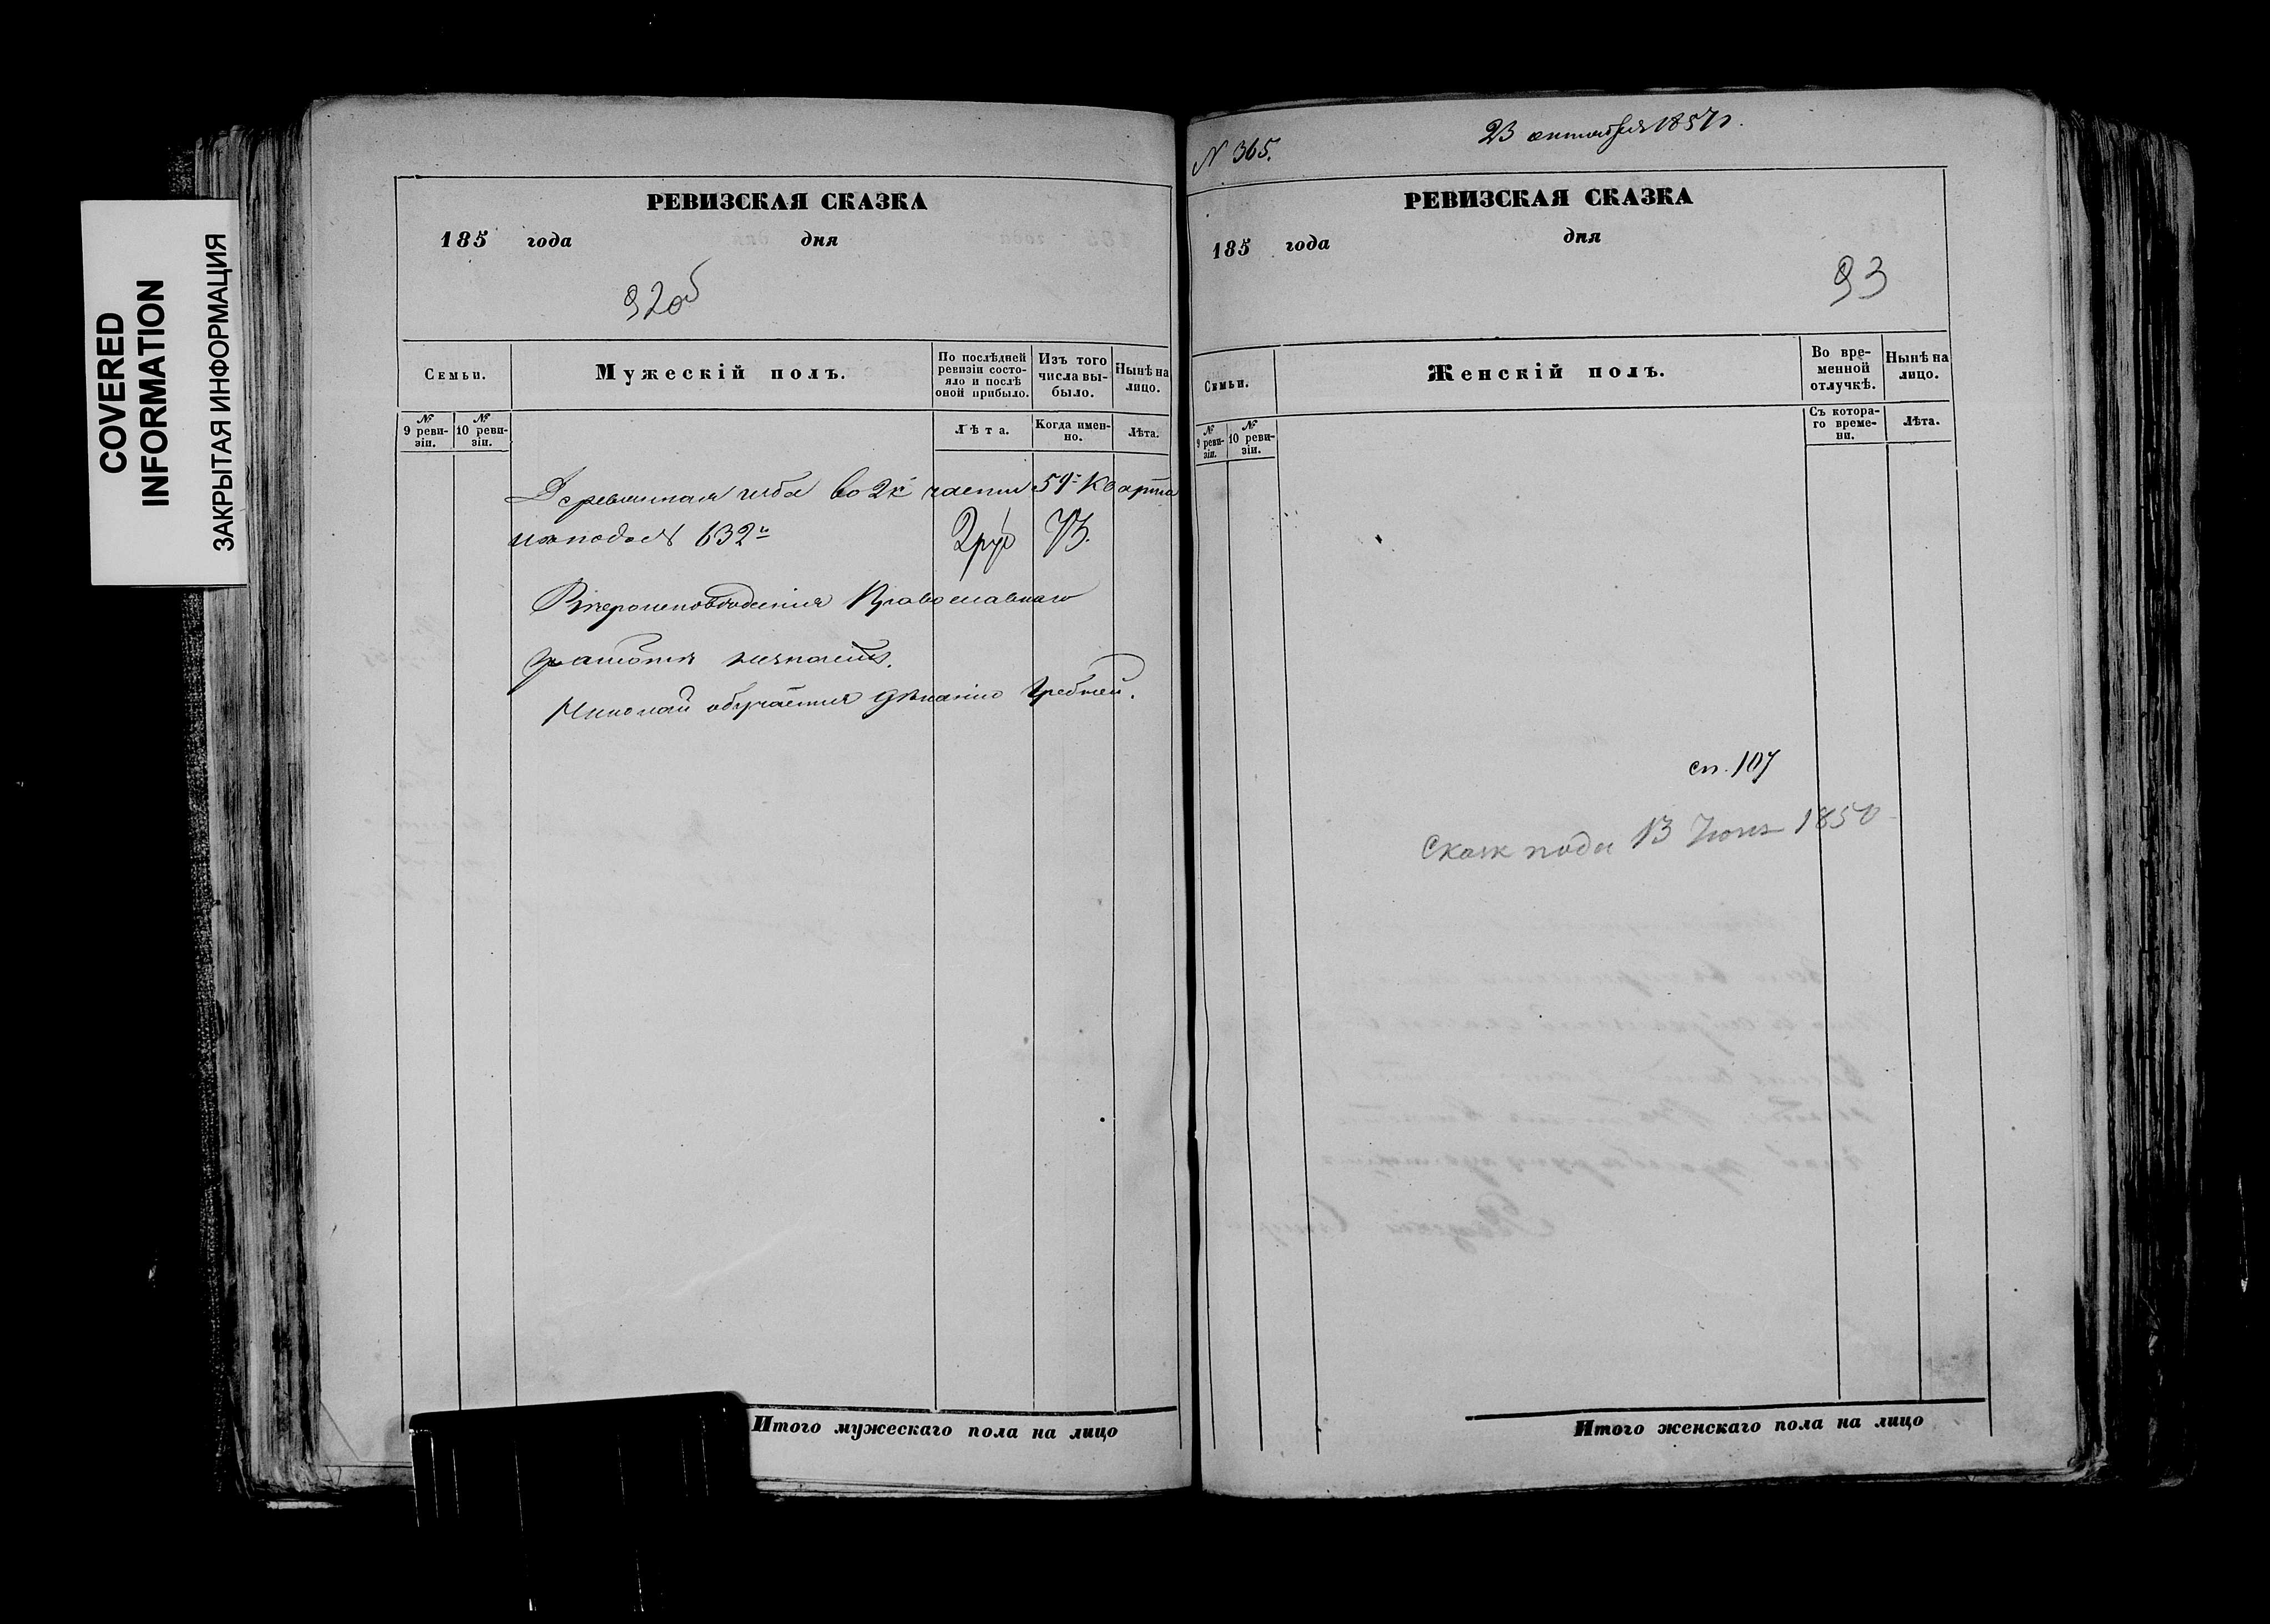 COVERED
INFORMATION
ЗАКРЫТАЯ ИНФОРМАЦИЯ
РЕВИЗСКАЯ СКАЗКА
185 года дня
92об
Семьи.
Мужескій полъ.
По послѣдней
ревизіи состо-
яло и послѣ
оной прибыло.
Изъ того
числа вы-
было.
Нынѣ на
лицо.
№
9 реви-
зіи.
№
10 реви-
зіи.
Лѣта.
Когда имен-
но.
Лѣта.
Деревянная изба во 2й части 59 Кварта
632
2 руб 73.
Вѣроисповѣданія Православнаго
грамотѣ незнаетъ.
Николай обучается дѣланію Гребней.
Итого мужескаго пола на лицо
N 365.
23 октября 1857 г.
РЕВИЗСКАЯ СКАЗКА
185 года дня
93
Семьи.
Женскій полъ.
Во вре-
менной
отлучкѣ.
Нынѣ на
лицо.
№
9 реви-
зіи.
№
10 реви-
зіи.
Съ котора-
го време-
ни.
Лѣта.
сп. 107
Сказк пода 13 Іюня 1850
Итого женскаго пола на лицо